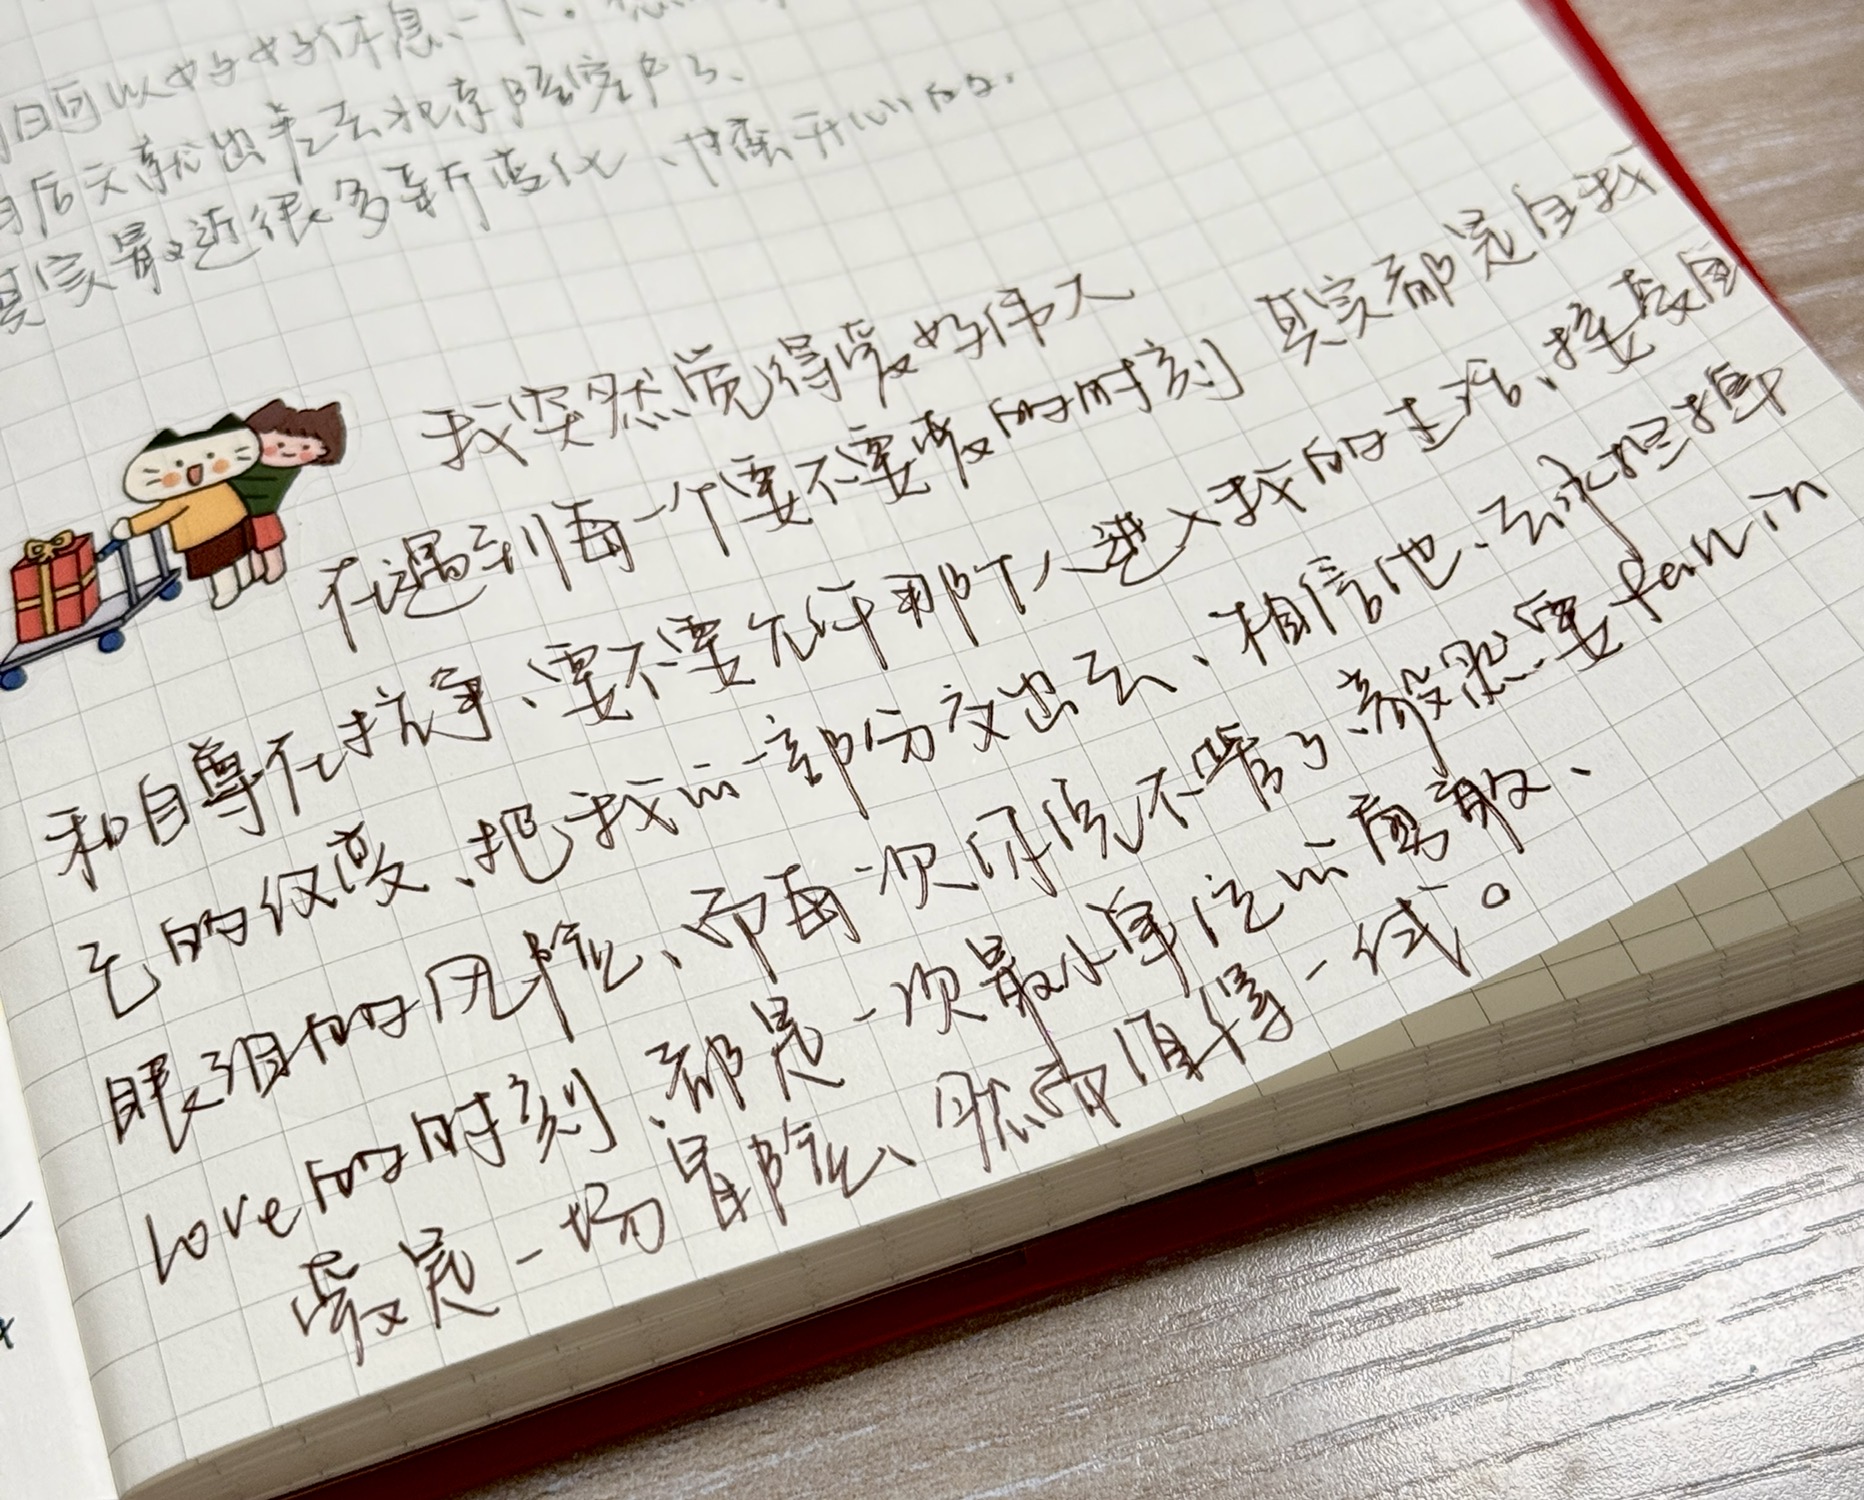 日可以好好休息一下。
后天就出差去北京陪客户了、
其实最近很多新变化、也蛮开心的.
我突然觉得爱好伟大
在遇到每一个要不要爱的时刻 其实都是自我
和自尊在抗争、要不要允许那个人进入我的生活、接受自
己的改变、把我的一部分交出去、相信他、去承担掉
眼泪的风险、而每一次你说不管了、毅然要fall in
love的时刻、都是一次最小单位的勇敢、
爱是一场冒险、然而值得一试。